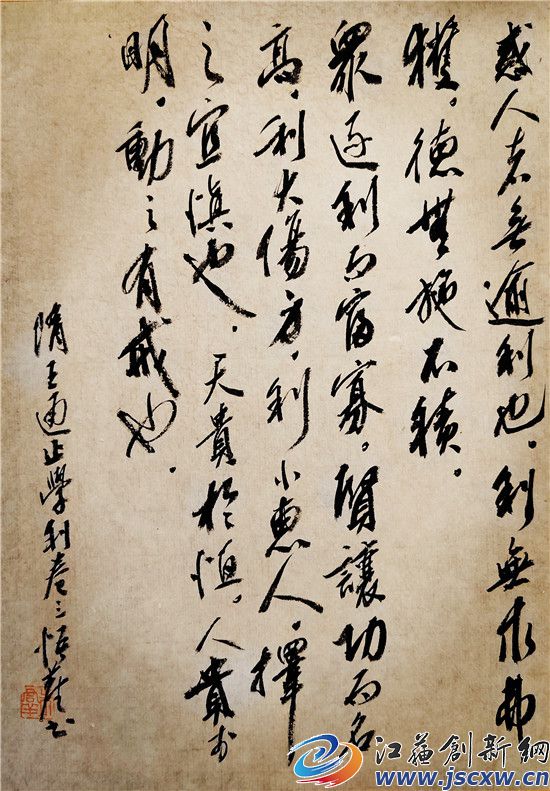 惑人者無逾利也。利無求弗
獲。德無施不積。
眾逐利而富寡。賢讓功而名
高。利大傷身，利小惠人，擇
之宜慎也。天貴於。人貴於
明。動之有戒也。
隋王通止學利卷三書
江蘇創新網
www.jscxw.cn